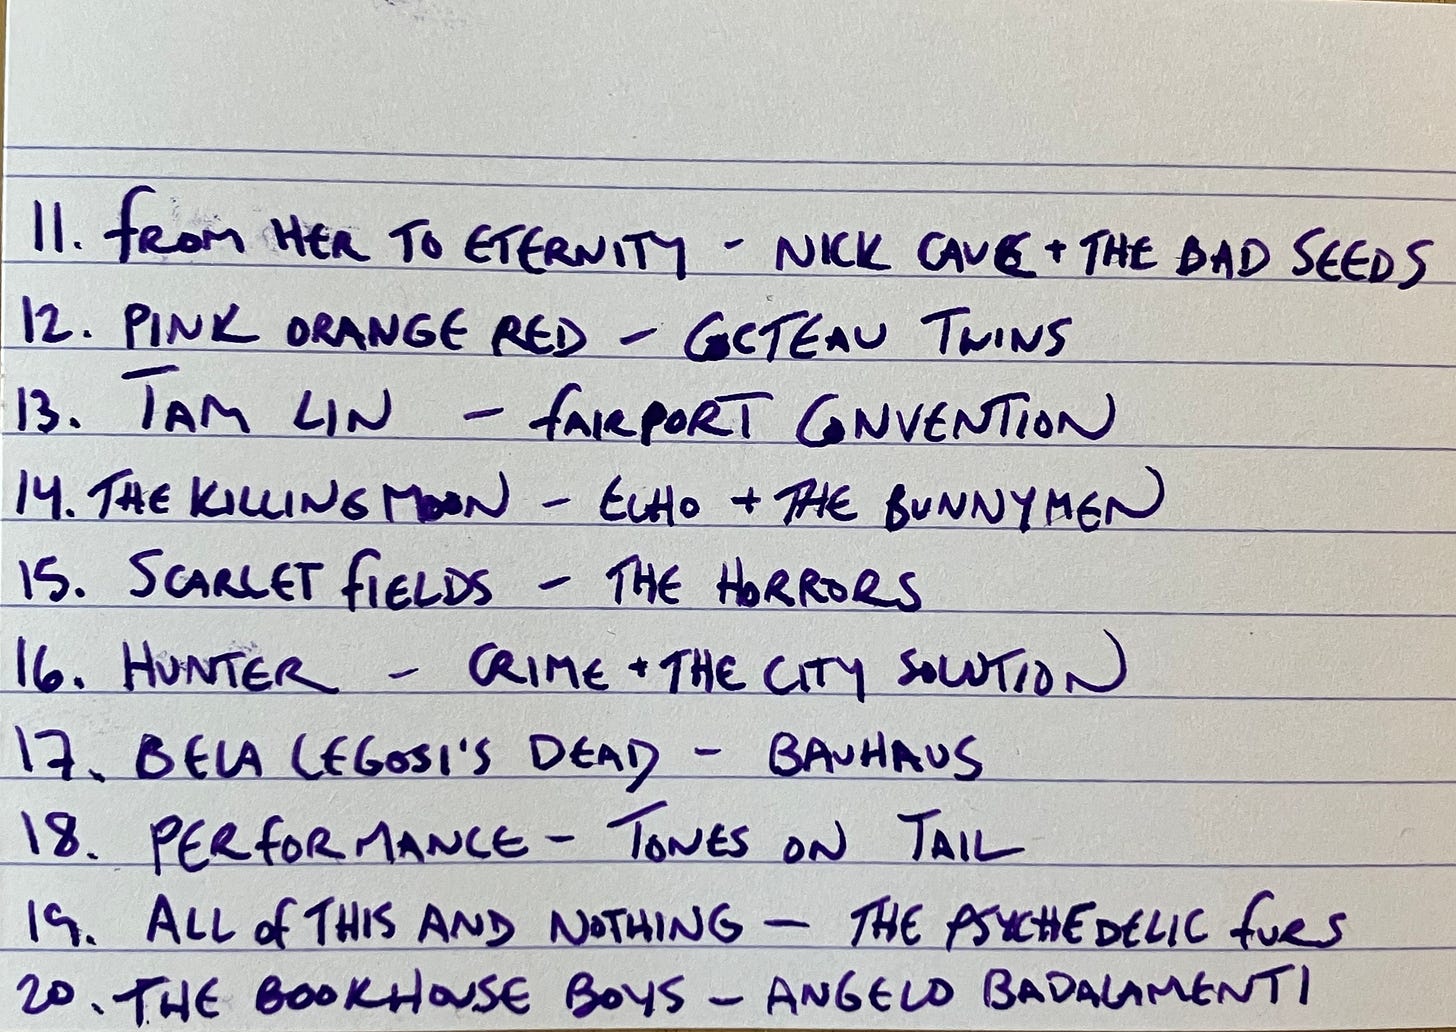 11. from HER TO ETERNITY - NICK CAVE + THE BAD SEEDS
12. PINK ORANGE RED - COCTEAU TWINS
13. TAM LIN - fAIRPORT CONVENTION
14. THE KILLING MOON - ECHO + THE BUNNYMEN
15. SCARLET fIELDS - THE HORRORS
16. HUNTER - CRIME + THE CITY SOLUTION
17. BELA LEGOSI'S DEAD - BAUHAUS
18. PERfORMANCE - TONES ON TAIL
19. ALL of THIS AND NOTHING - THE PSYCHEDELIC fURS
20. THE BOOKHOUSE BOYS - ANGELO BADALAMENTI